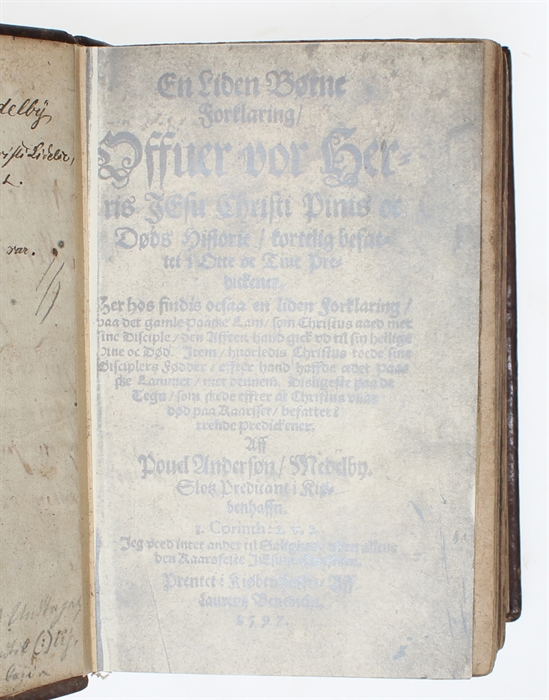 delby
risti Lidelse,
var.
En Liden Børne
Forklaring/
Offuer vor Her-
ris JEsu Christi Pinis oc
Døds Historie/ kortelig befat-
tet i Otte oc Tiue Pre-
dickener.
Her hos findis ocsaa en liden Forklaring/
paa det gamle Paaske Lam/ som Christus aad met
sine Disciple/ den Afften hand gick vd til sin hellige
Pine oc Død. Item/ huorledis Christus toede sine
Disciplers Fødder/ effter hand haffde ædet Paa-
ske Lammet/ met dennem. Disligeste paa de
Tegn/ som skede effter at Christus vaar
død paa Kaarsset/ befattet i
trende Predickener.
Aff
Pouel Andersøn/ Medelby.
Slotz Predicant i Kiø-
benhaffn.
1. Corinth: 2. v. 2.
Jeg veed intet andet til Salighed, uden allene
den Kaarsfeste JEsum
Prentet i Kiøbenhaffn/ Aff
Laurentz Benedicht.
1597.